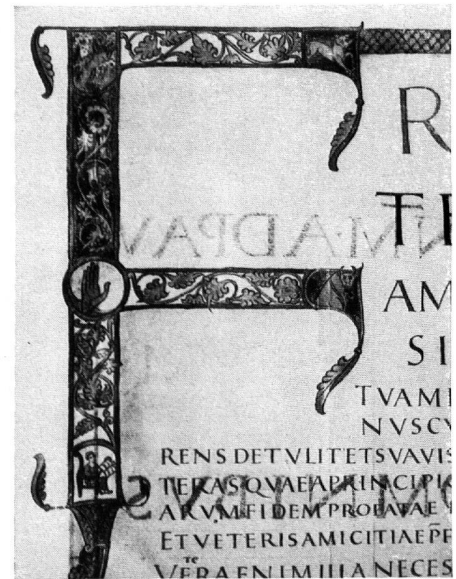 F R
T
AM
SI
TVAMI
NVSCV
RENS DETVLITETSVAVIS
TERASQVAEAPRINCIPI
ARVMFIDEMPROBATAE
ETVETERISAMICITIAEP̄F
VERAENIMILLANECES